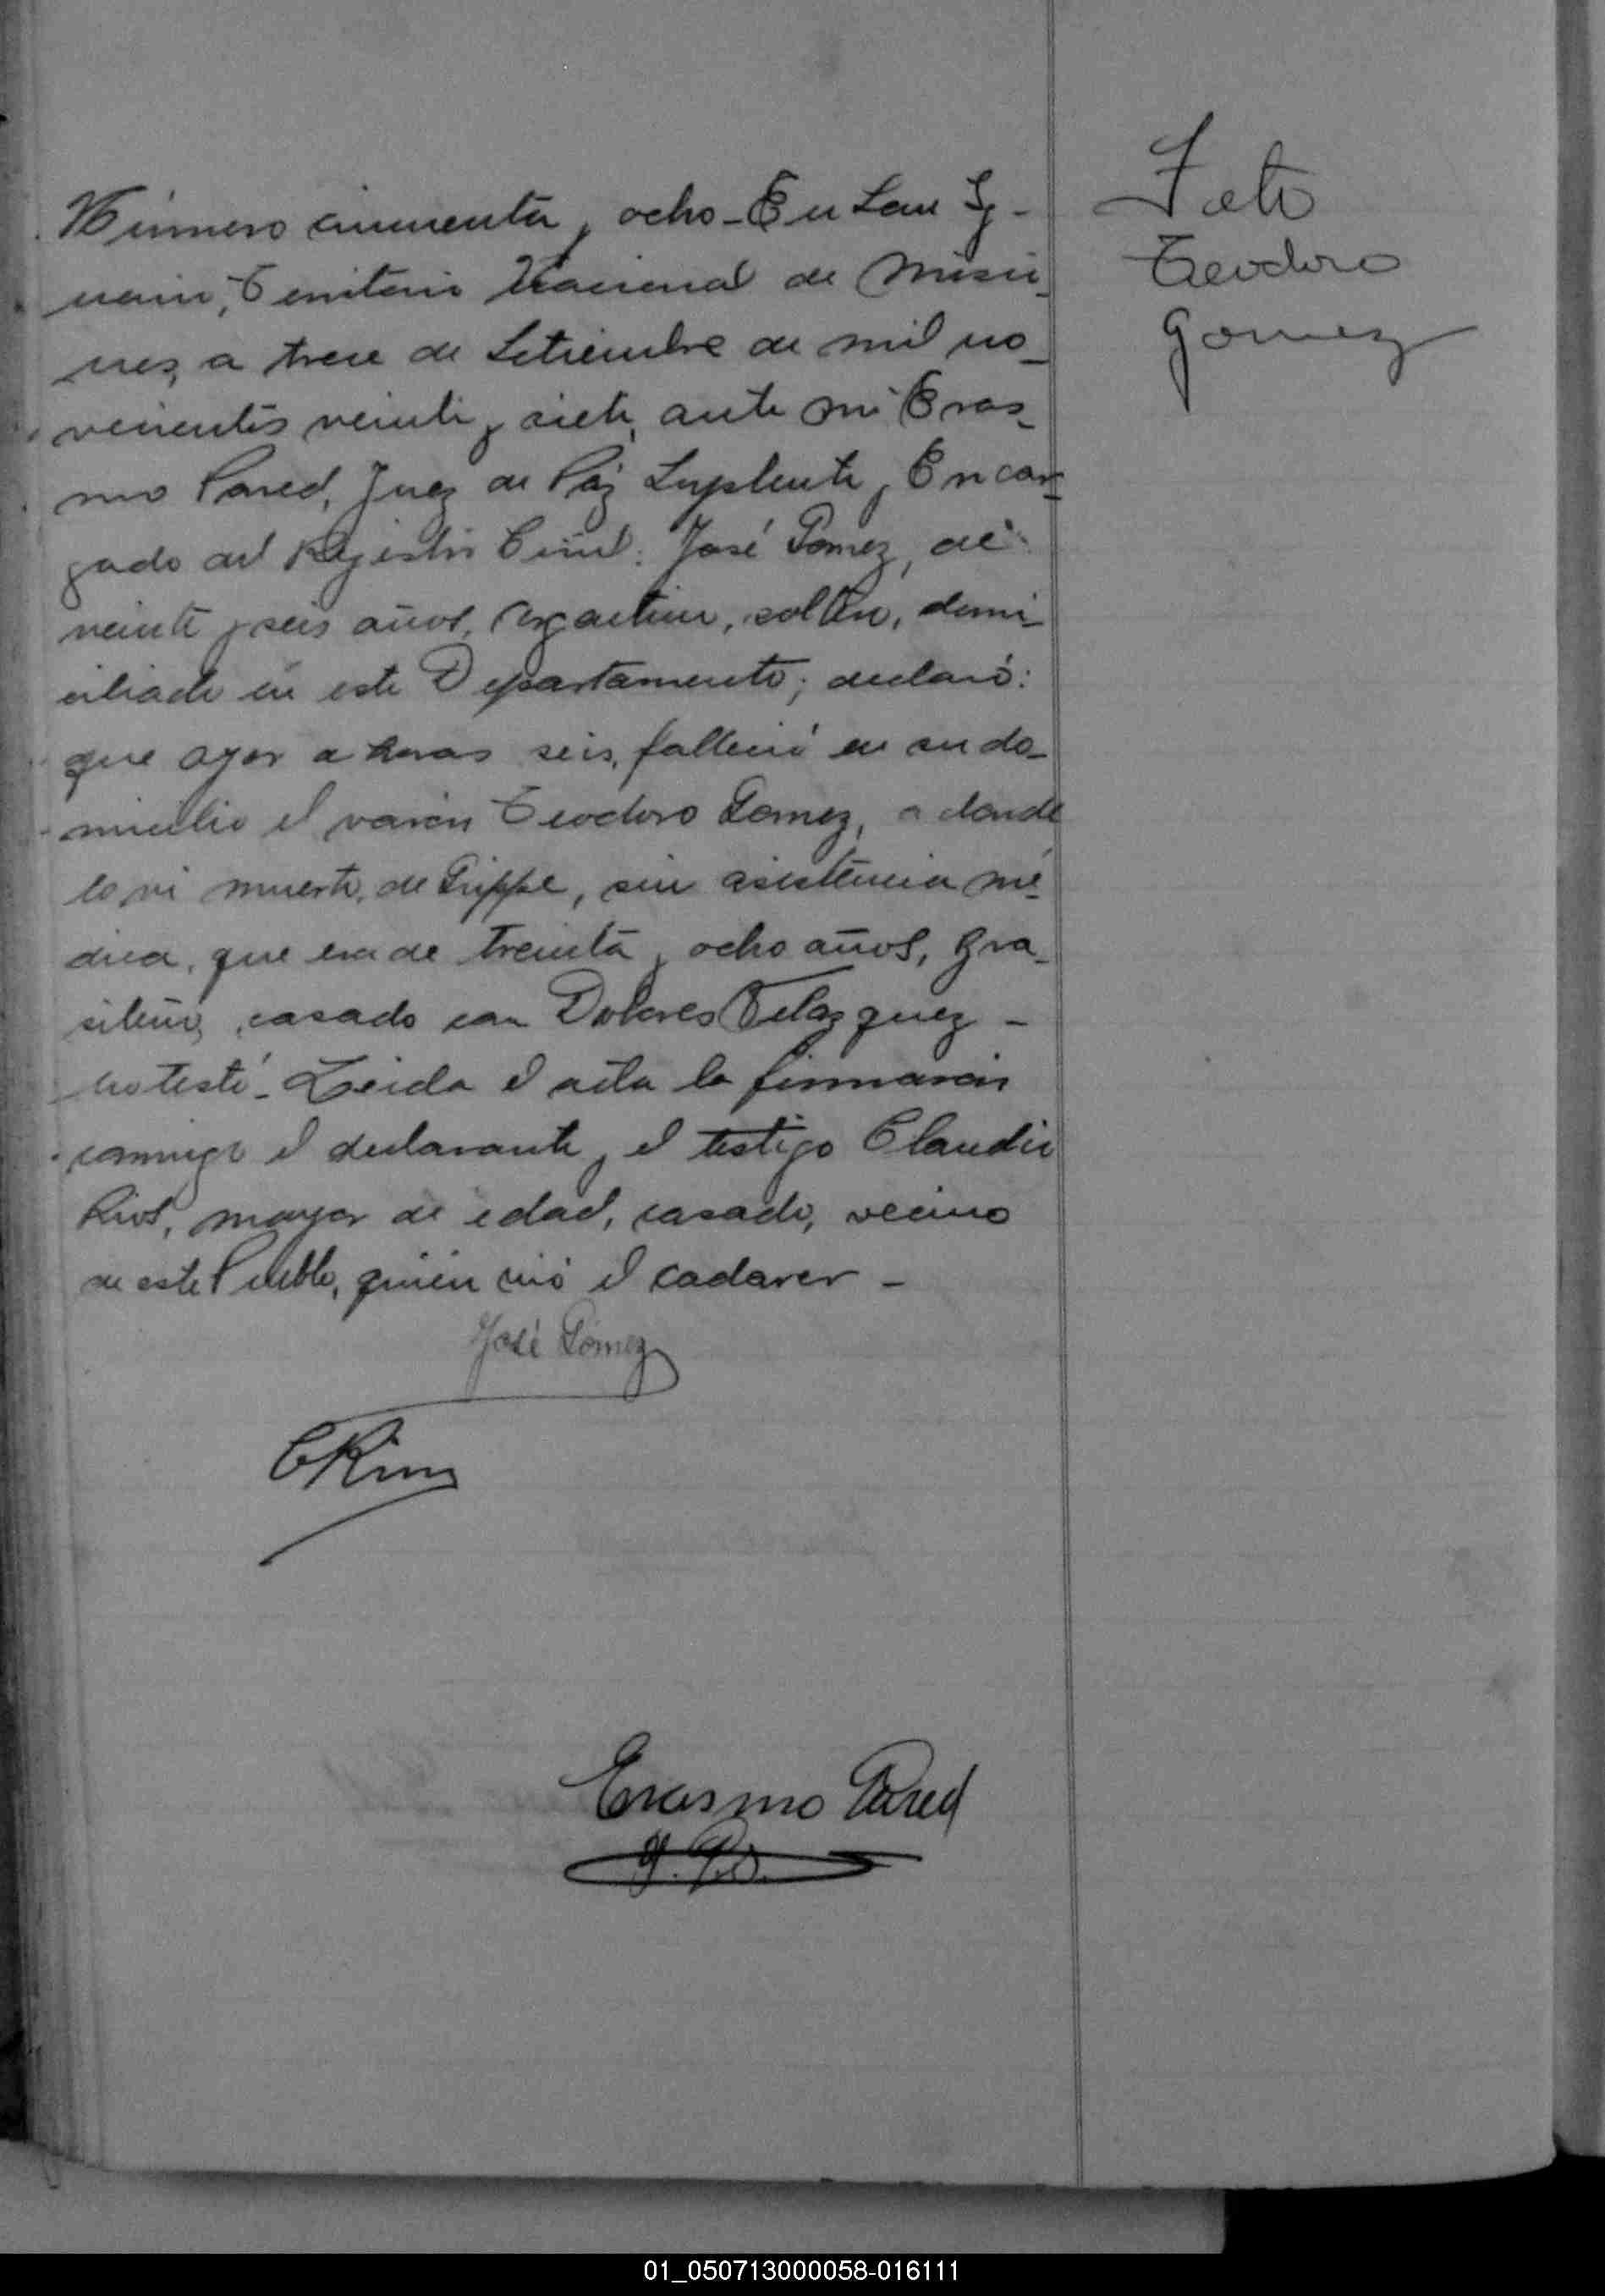 Número cincuenta y ocho - En San Ig-
nacio, Territorio Nacional de Misio-
nes, a trece de Setiembre de mil no-
vecientos veinte y siete, ante mi Eras-
mo Pared, Juez de Páz Suplente y Encar-
gado del Registro Civil: José Gomez, de
veinte y seis años, Argentino, soltero, domi-
ciliado en este Departamento; declaró:
que ayer a horas seis, falleció en su do-
micilio el varón Teodoro Gomez, a donde
lo vi muerto, de Grippe, sin asistencia mé-
dica, que era de treinta y ocho años, Bra-
sileño, casado con Dolores Velazquez -
no testó - Leida el acta la firmaron
conmigo el declarante y el testigo Claudio
Rios, mayor de edad, casado, vecino
de este Pueblo, quien vió el cadaver -
José Gómez
C Rios
Erasmo Pared
J. P. S.
Teodoro
Gomez
01_050713000058-016111